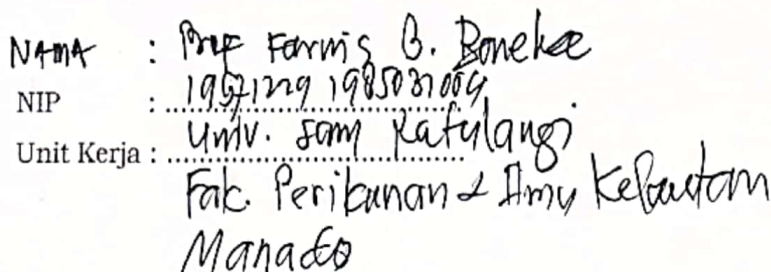 NAMA : Prof Farnis B. Boneka
NIP : 19571229 1985031004
Unit Kerja : Univ. Sam Ratulangi
Fak. Perikanan & Ilmu Kelautan
Manado